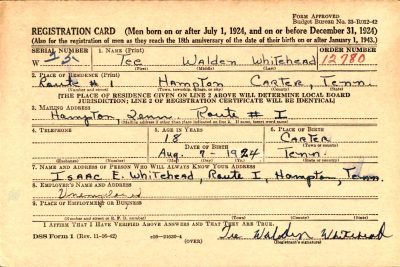 FORM APPROVED
Budget Bureau No. 33-R012-42
REGISTRATION CARD (Men born on or after July 1, 1924, and on or before December 31, 1924)
(Also for the registration of men as they reach the 18th anniversary of the date of their birth on or after January 1, 1943.)
SERIAL NUMBER 1. NAME (Print) ORDER NUMBER
W Tee Walden Whitehead 12780
(First) (Middle) (Last)
2. PLACE OF RESIDENCE (Print)
Route # 1 Hampton Carter, Tenn.
(Number and street) (Town, township, village, or city) (County) (State)
[THE PLACE OF RESIDENCE GIVEN ON LINE 2 ABOVE WILL DETERMINE LOCAL BOARD
JURISDICTION; LINE 2 OF REGISTRATION CERTIFICATE WILL BE IDENTICAL]
3. MAILING ADDRESS
Hampton Tenn. Route # I
[Mailing address if other than place indicated on line 2. If same, insert word same]
4. TELEPHONE 5. AGE IN YEARS 6. PLACE OF BIRTH
18 Carter
DATE OF BIRTH (Town or county)
Aug. 7 - 1924 Tenn.
(Exchange) (Number) (Mo.) (Day) (Yr.) (State or country)
7. NAME AND ADDRESS OF PERSON WHO WILL ALWAYS KNOW YOUR ADDRESS
Isaac E. Whitehead, Route I, Hampton, Tenn.
8. EMPLOYER'S NAME AND ADDRESS
Unemployed
9. PLACE OF EMPLOYMENT OR BUSINESS
(Number and street or R. F. D. number) (Town) (County) (State)
I AFFIRM THAT I HAVE VERIFIED ABOVE ANSWERS AND THAT THEY ARE TRUE.
DSS Form 1 (Rev. 11-16-42) (OVER) Tee Walden Whitehead
(Registrant's signature)